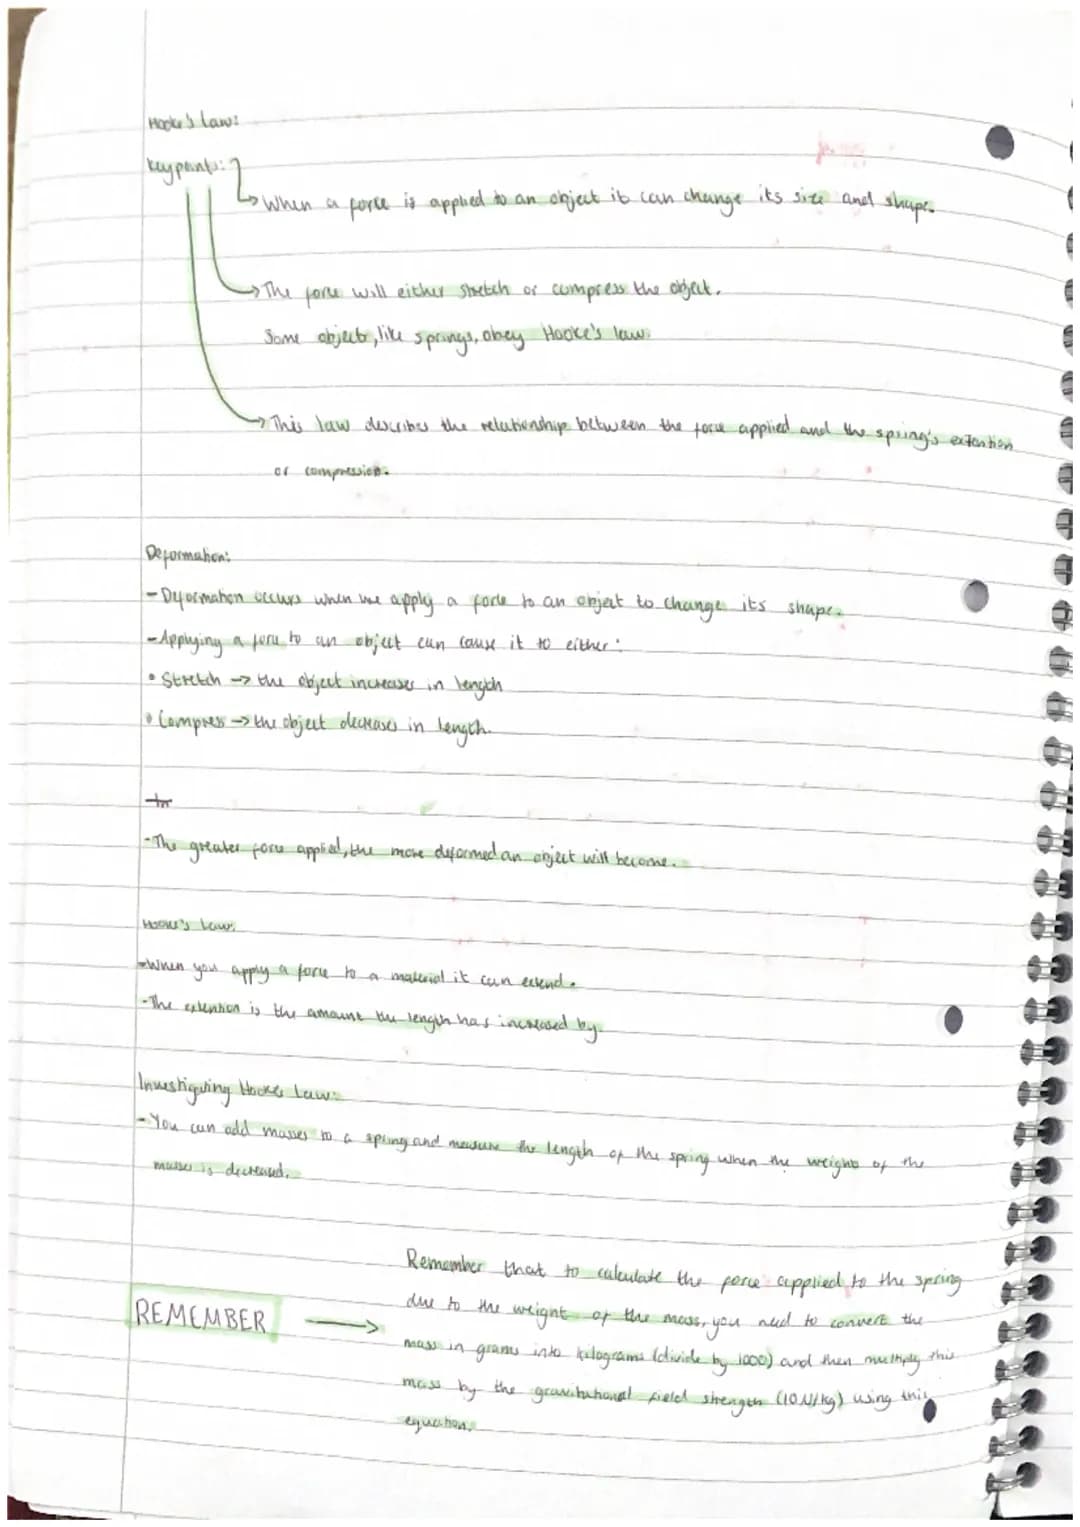 Hooke's Law:
Key points:
→ When a force is applied to an object it can change its size and shape.
→ The force will either stretch or compress the object.
Some objects, like springs, obey Hooke's law.
→ This law describes the relationship between the force applied and the spring's extention
or compression.
Deformation:
- Deformation occurs when we apply a force to an object to change its shape.
- Applying a force to an object can cause it to either:
• Stretch → the object increases in length
• Compress → the object decreases in length.
- The greater force applied, the more deformed an object will become.
Hooke's Law:
- When you apply a force to a material it can extend.
- The extention is the amount the length has increased by.
Investigating Hookes Law:
- You can add masses to a spring and measure the length of the spring when the weight of the
masses is decreased.
Remember that to calculate the force applied to the spring
due to the weight of the mass, you need to convert the
REMEMBER →
mass in grams into kilograms (divide by 1000) and then multiply this
mass by the gravitational field strength (10N/kg) using this
equation.